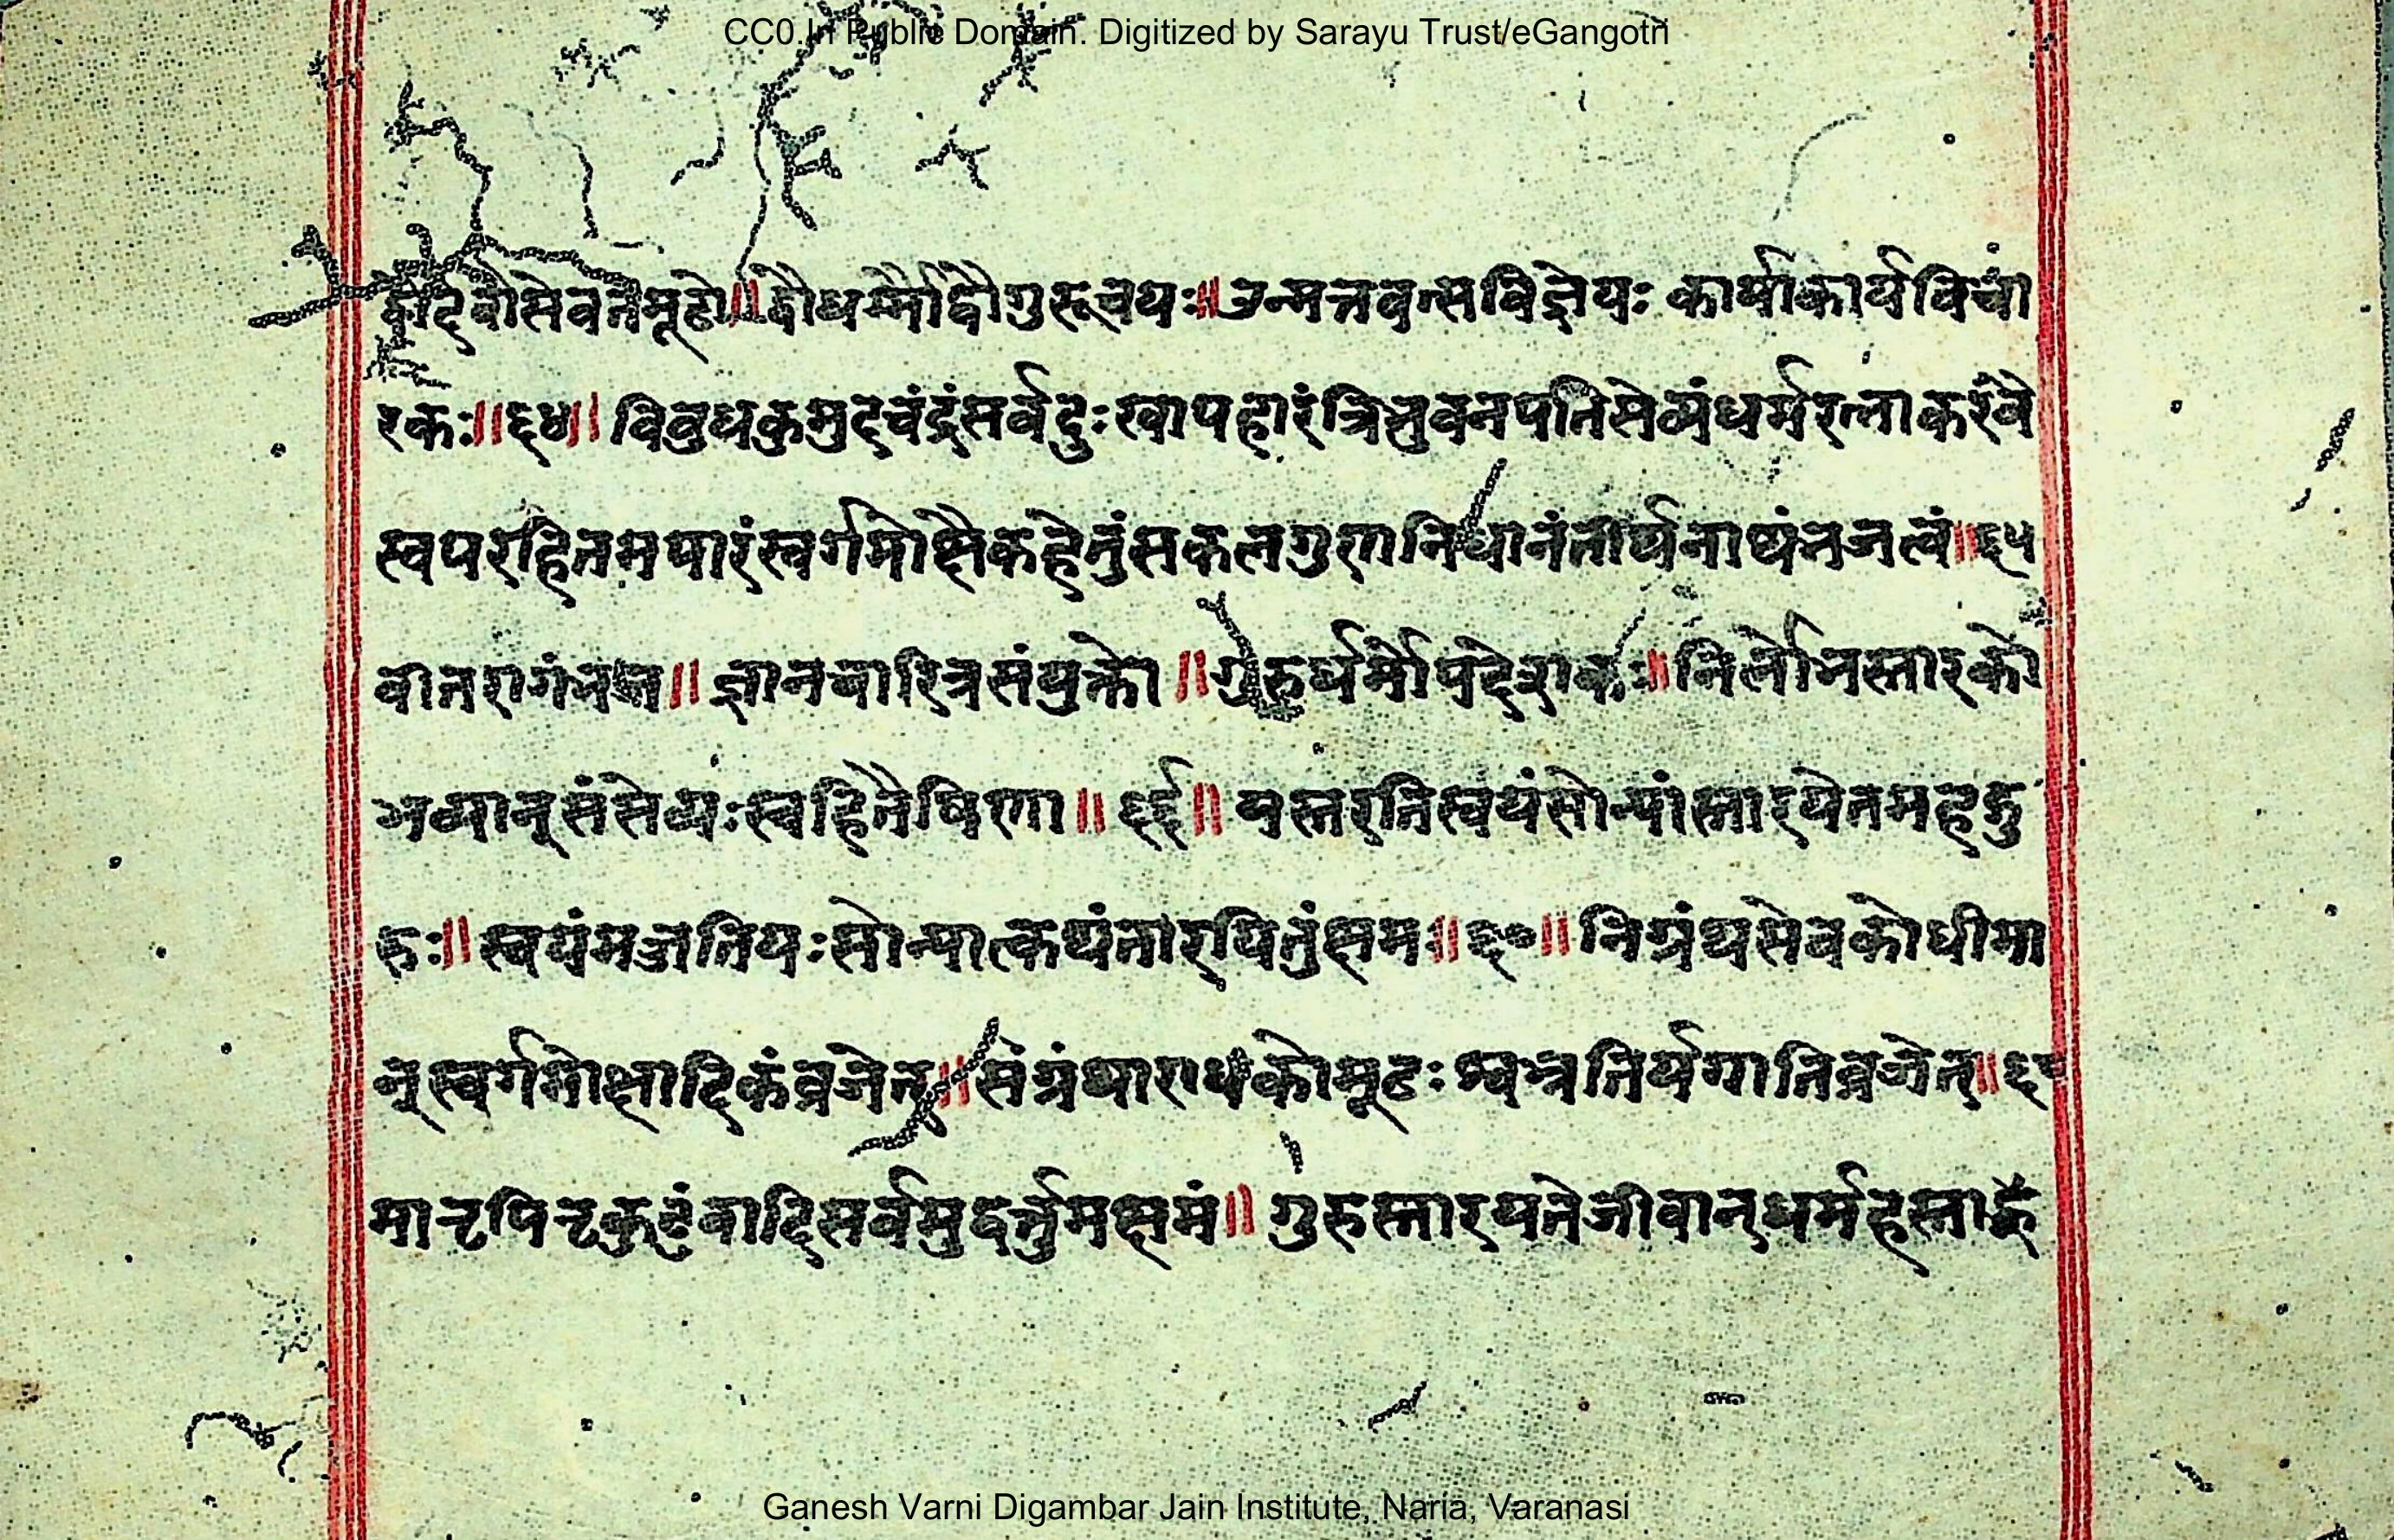 CC0.In Public Domain. Digitized by Sarayu Trust/eGangotri
द्वौदेवौसेवतेमूढो॥द्वौधर्म्मौद्वौगुरूचयः॥उन्मत्तवत्सविज्ञेयः कार्याकार्यविचा
रकः॥६४॥ विबुधकुमुदचंद्रंसर्वदुःखापहारंत्रिभुवनपतिसेव्यंधर्मरत्नाकरंवै
स्वपरहितमपारंस्वर्गमोक्षैकहेतुंसकलगुणनिधानंतीर्थनाथंभजत्वं॥६५
वीतरागंभज॥ ज्ञानचारित्रसंयुक्तो॥गुरुर्धर्मोपदेशकः॥निर्लोभस्तारको
भव्यान्संसेव्यःस्वहितैषिणा॥६६॥ यस्तरतिस्वयंसोन्यांस्तारयेतमहद्गु
रुः॥स्वयंमज्जतियःसोन्यात्कथंतारयितुंक्षमः॥६७॥निग्रंथसेवकोधीमा
न्स्वर्गमोक्षादिकंव्रजेत्॥संग्रंथाराधकोमूढःश्वभ्रतिर्यगातिव्रजेत्॥६८
मातृपितृकुटुंबादिसर्वमुद्धर्तुमक्षमं॥ गुरुस्तारयतेजीवान्धर्महस्ता
Ganesh Varni Digambar Jain Institute, Naria, Varanasi